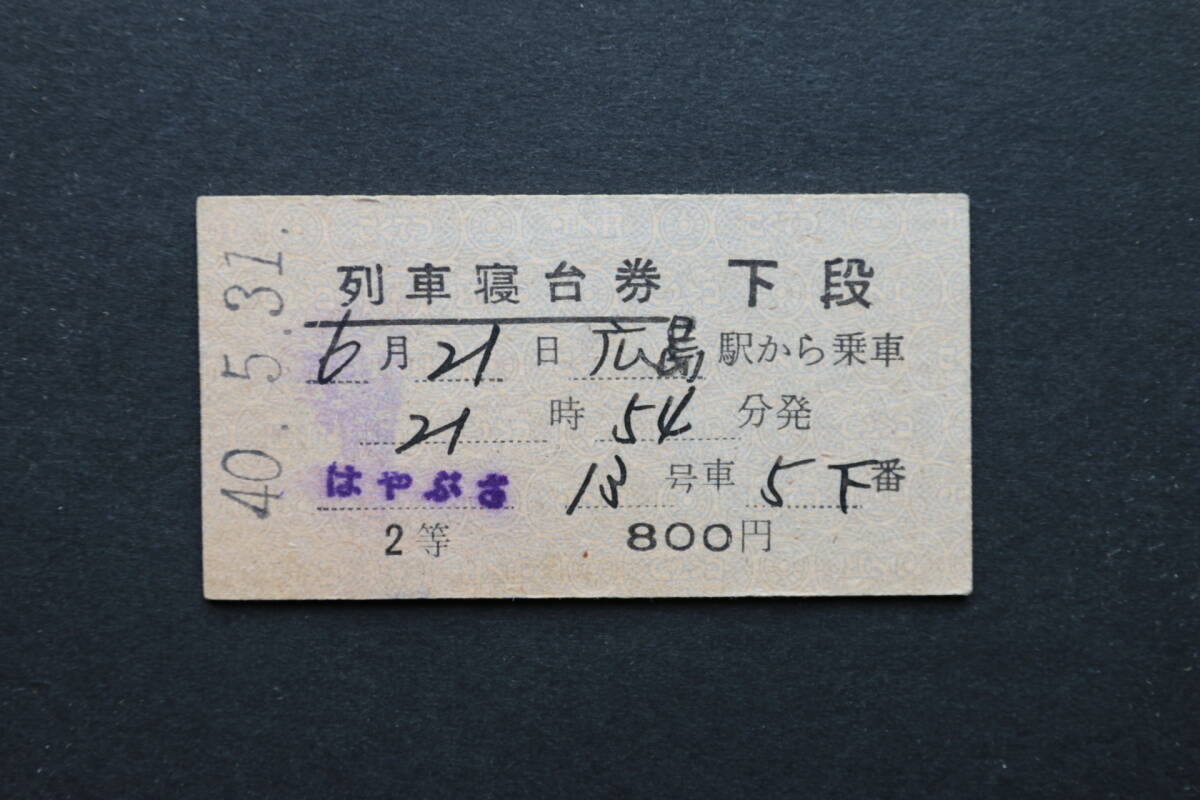 40.5.31.
列車寝台券 下段
6月21日広島駅から乗車
21時54分発
はやぶさ 13号車5下番
2等 800円